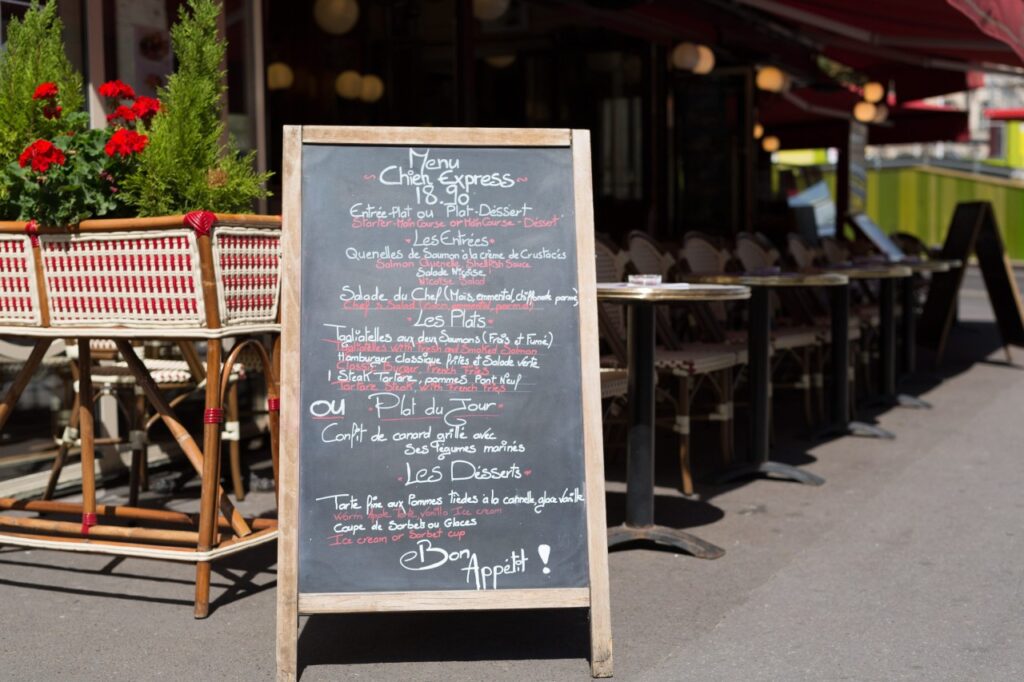 Menu
Chien Express
18.90
Entrée-Plat ou Plat-Déssert
Starter-Main Course or Main Course - Déssert
Les Entrées
Quenelles de Saumon à la crème de Crustacés
Salmon Quenelle, Shellfish Sauce
Salade Niçoise
Nicoise Salad
Salade du Chef (Maïs, emmental, chiffonade parme)
Chef's Salad
Les Plats
Tagliatelles aux deux Saumons (Frais et Fumé)
Tagliatelles with Fresh and Smoked Salmon
Hamburger Classique frites et Salade verte
Classic Burger, French Fries
1 Steak Tartare, pommes Pont Neuf
Tartare Steak, with French Fries
ou Plat du Jour
Confit de canard grillé avec
Ses légumes marinés
Les Désserts
Tarte fine aux Pommes tièdes à la cannelle, glace vanille
Warm Apple Tarte, vanilla Ice cream
Coupe de Sorbets ou Glaces
Ice cream or Sorbet cup
Bon
Appétit !